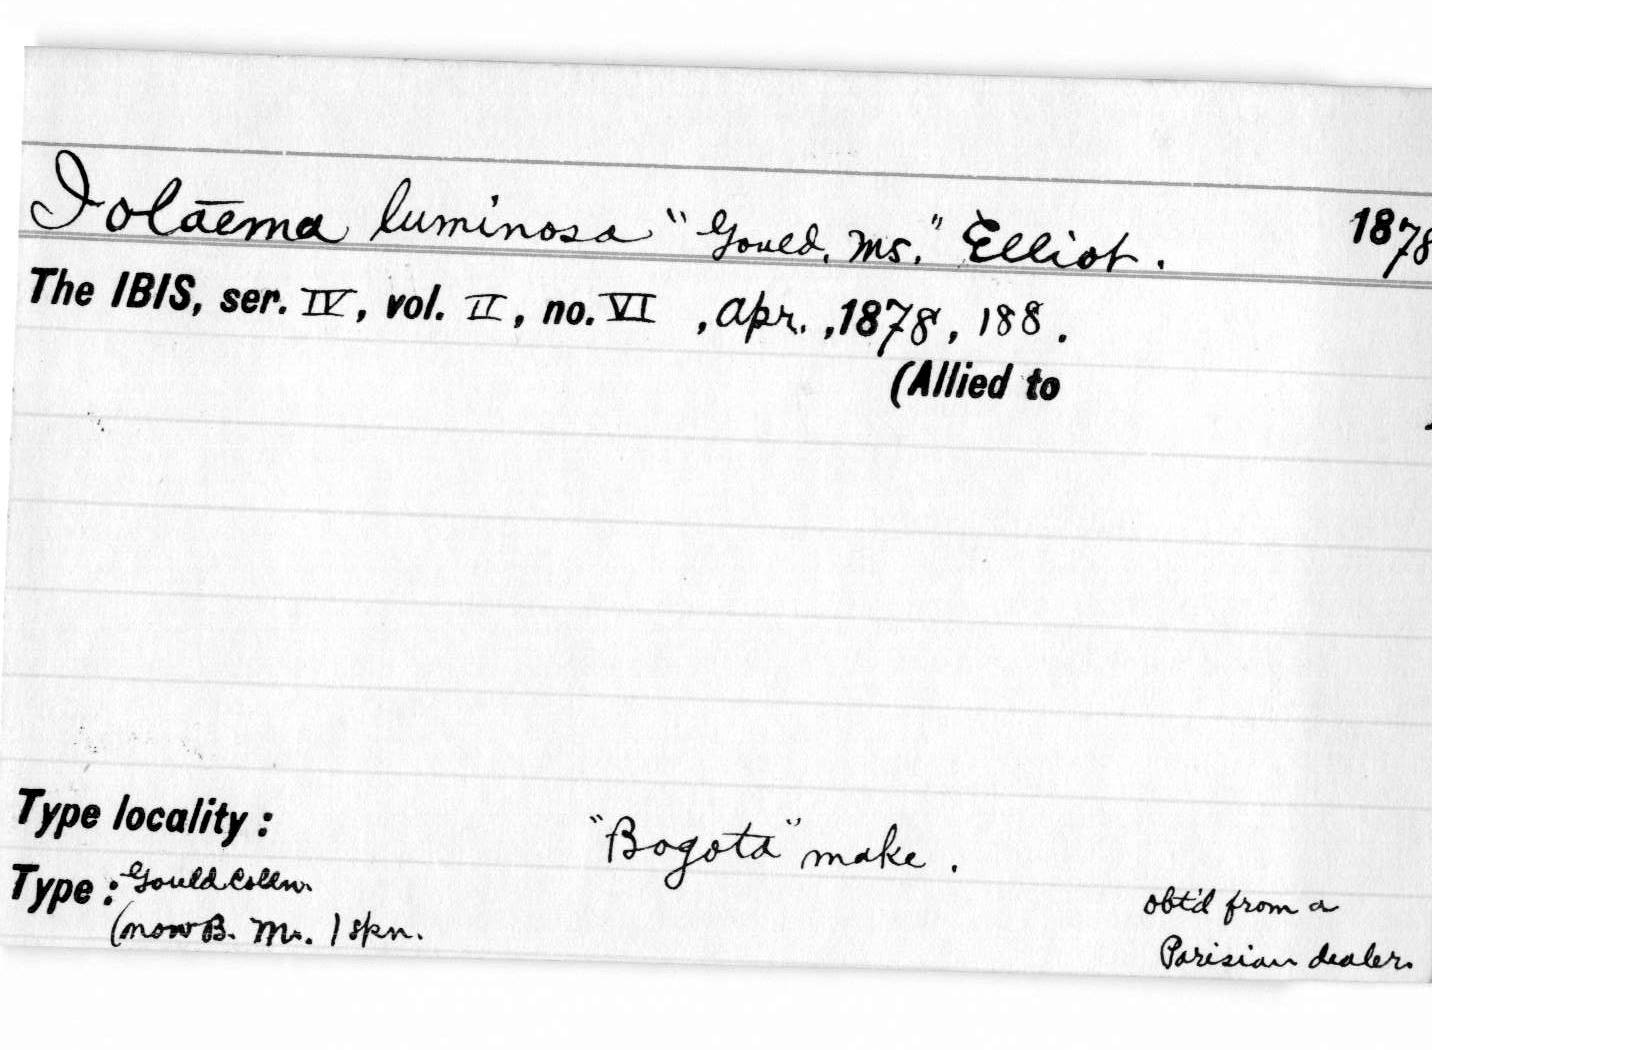 Iolāema luminosa "Gould, MS." Elliot. 1878
The IBIS, ser. IV, vol. II, no. VI , Apr. ,1878, 188.
(Allied to
Type locality: "Bogotá" make.
Type: Gould Colln.
(now B. M. 1 spn.
obt'd from a
Parisian dealer.